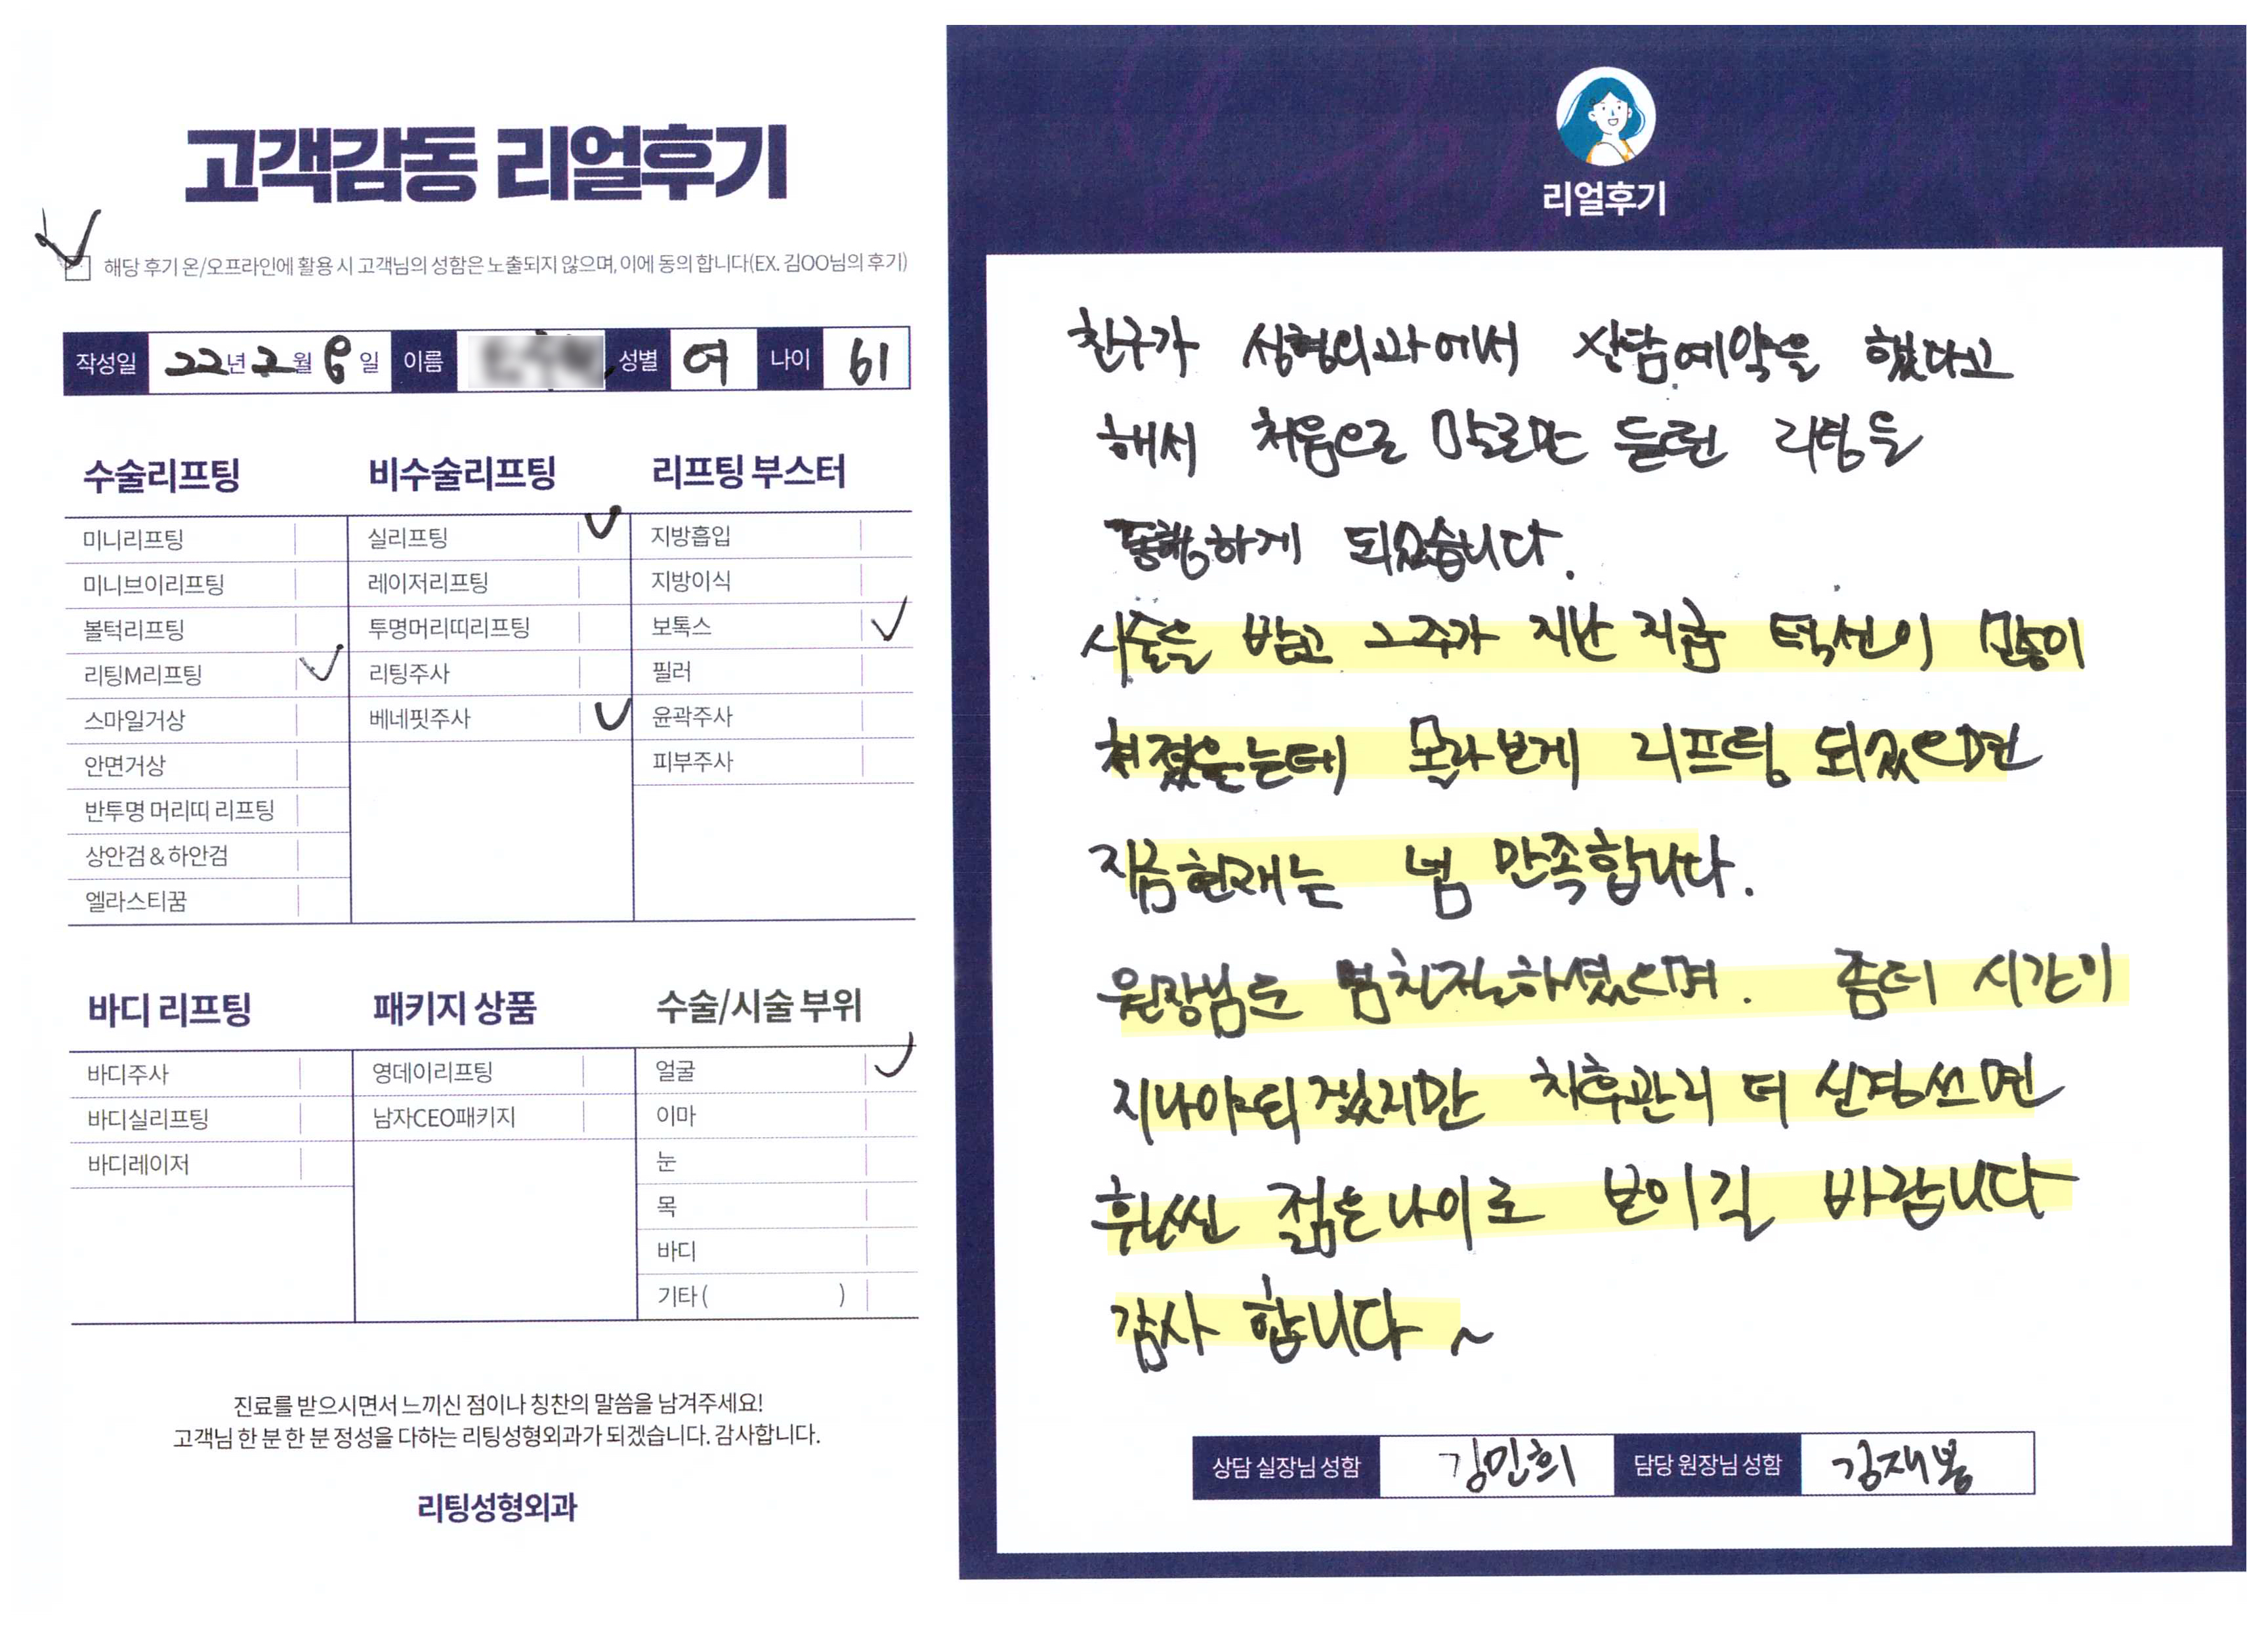 고객감동 리얼후기
해당 후기 온/오프라인에 활용 시 고객님의 성함은 노출되지 않으며, 이에 동의 합니다(EX. 김OO님의 후기)
작성일 22년 2월 8일 이름 성별 여 나이 61
수술리프팅
미니리프팅
미니브이리프팅
볼턱리프팅
리팅M리프팅
스마일거상
안면거상
반투명 머리띠 리프팅
상안검&하안검
엘라스티꿈
비수술리프팅
실리프팅
레이저리프팅
투명머리띠리프팅
리팅주사
베네핏주사
리프팅 부스터
지방흡입
지방이식
보톡스
필러
윤곽주사
피부주사
바디 리프팅
바디주사
바디실리프팅
바디레이저
패키지 상품
영데이리프팅
남자CEO패키지
수술/시술 부위
얼굴
이마
눈
목
바디
기타( )
진료를 받으시면서 느끼신 점이나 칭찬의 말씀을 남겨주세요!
고객님 한 분 한 분 정성을 다하는 리팅성형외과가 되겠습니다. 감사합니다.
리팅성형외과
리얼후기
친구가 성형외과에서 상담예약을 했다고
해서 처음으로 말로만 듣던 리팅을
동행하게 되었습니다.
시술을 받고 2주가 지난 지금 턱선이 많이
쳐졌을는데 몰라보게 리프팅 되었으면
지금현재는 넘 만족합니다.
원장님도 넘친절하셨으며. 좀더 시간이
지나야되겠지만 차후관리 더 신경쓰면
훨씬 젊은나이로 보이길 바랍니다
감사 합니다~
상담 실장님 성함 김민희 담당 원장님 성함 김재봉